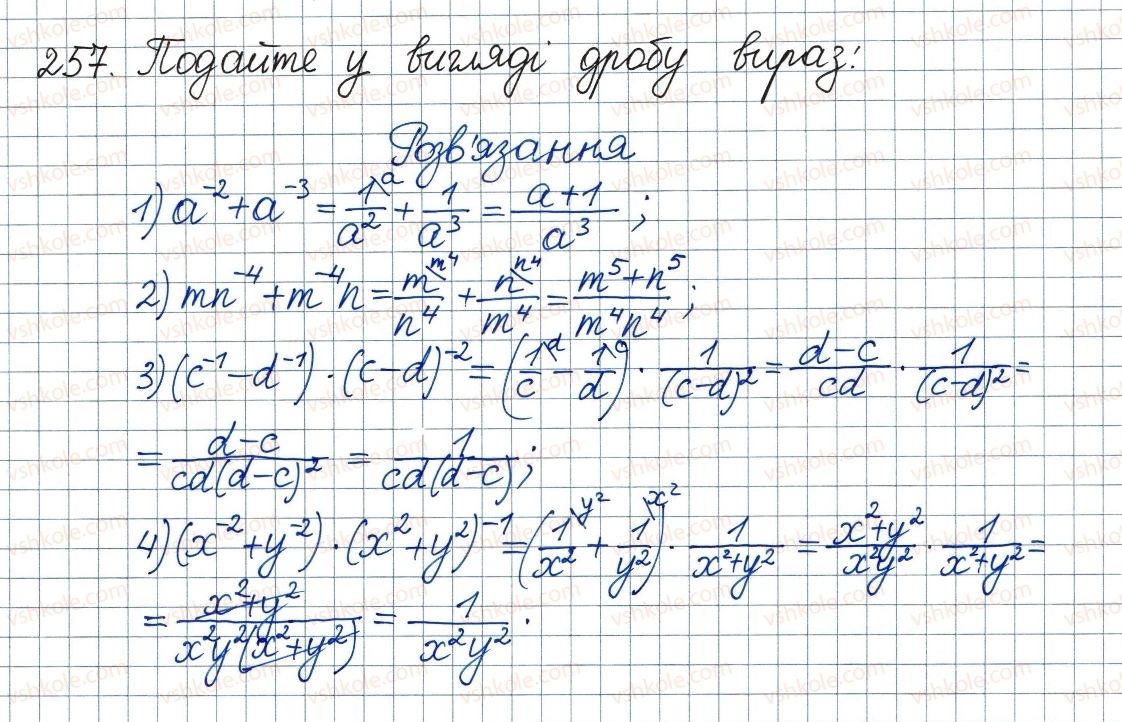 257. Подайте у вигляді дробу вираз:
Розв'язання
1) a⁻² + a⁻³ = 1\ᵃ/a² + 1/a³ = (a+1)/a³ ;
2) mn⁻⁴ + m⁻⁴n = m\ᵐ⁴/n⁴ + n\ⁿ⁴/m⁴ = (m⁵+n⁵)/(m⁴n⁴) ;
3) (c⁻¹ − d⁻¹) · (c−d)⁻² = (1\ᵈ/c − 1\ᶜ/d) · 1/(c−d)² = (d−c)/(cd) · 1/(c−d)² =
= (d−c)/(cd(d−c)²) = 1/(cd(d−c)) ;
4) (x⁻² + y⁻²) · (x² + y²)⁻¹ = (1\ʸ²/x² + 1\ˣ²/y²) · 1/(x²+y²) = (x²+y²)/(x²y²) · 1/(x²+y²) =
= (x²+y²)/(x²y²(x²+y²)) = 1/(x²y²) .
vshkole.com